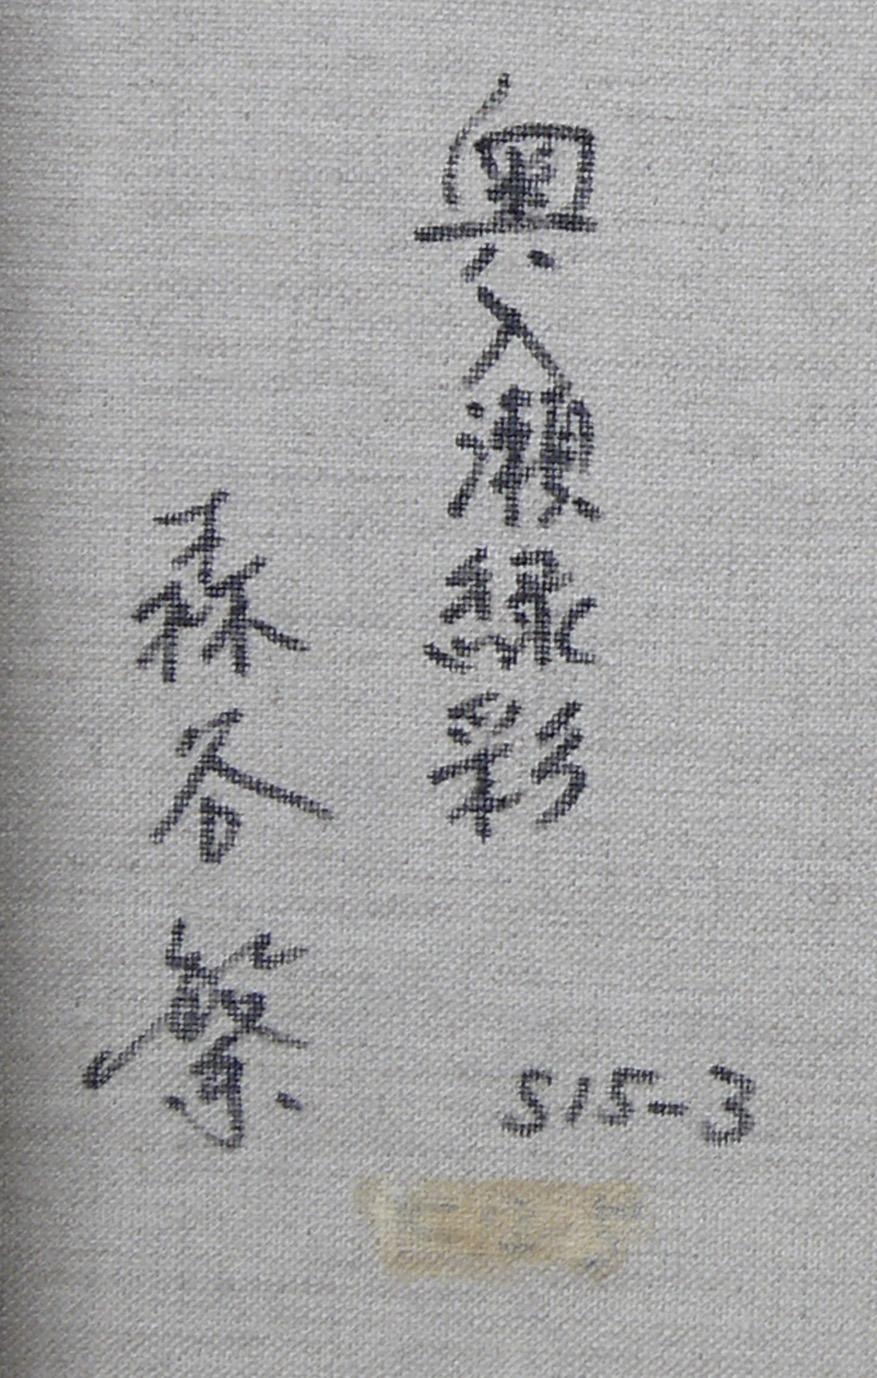 奥入瀬緑彩
森谷 繁
S15-3